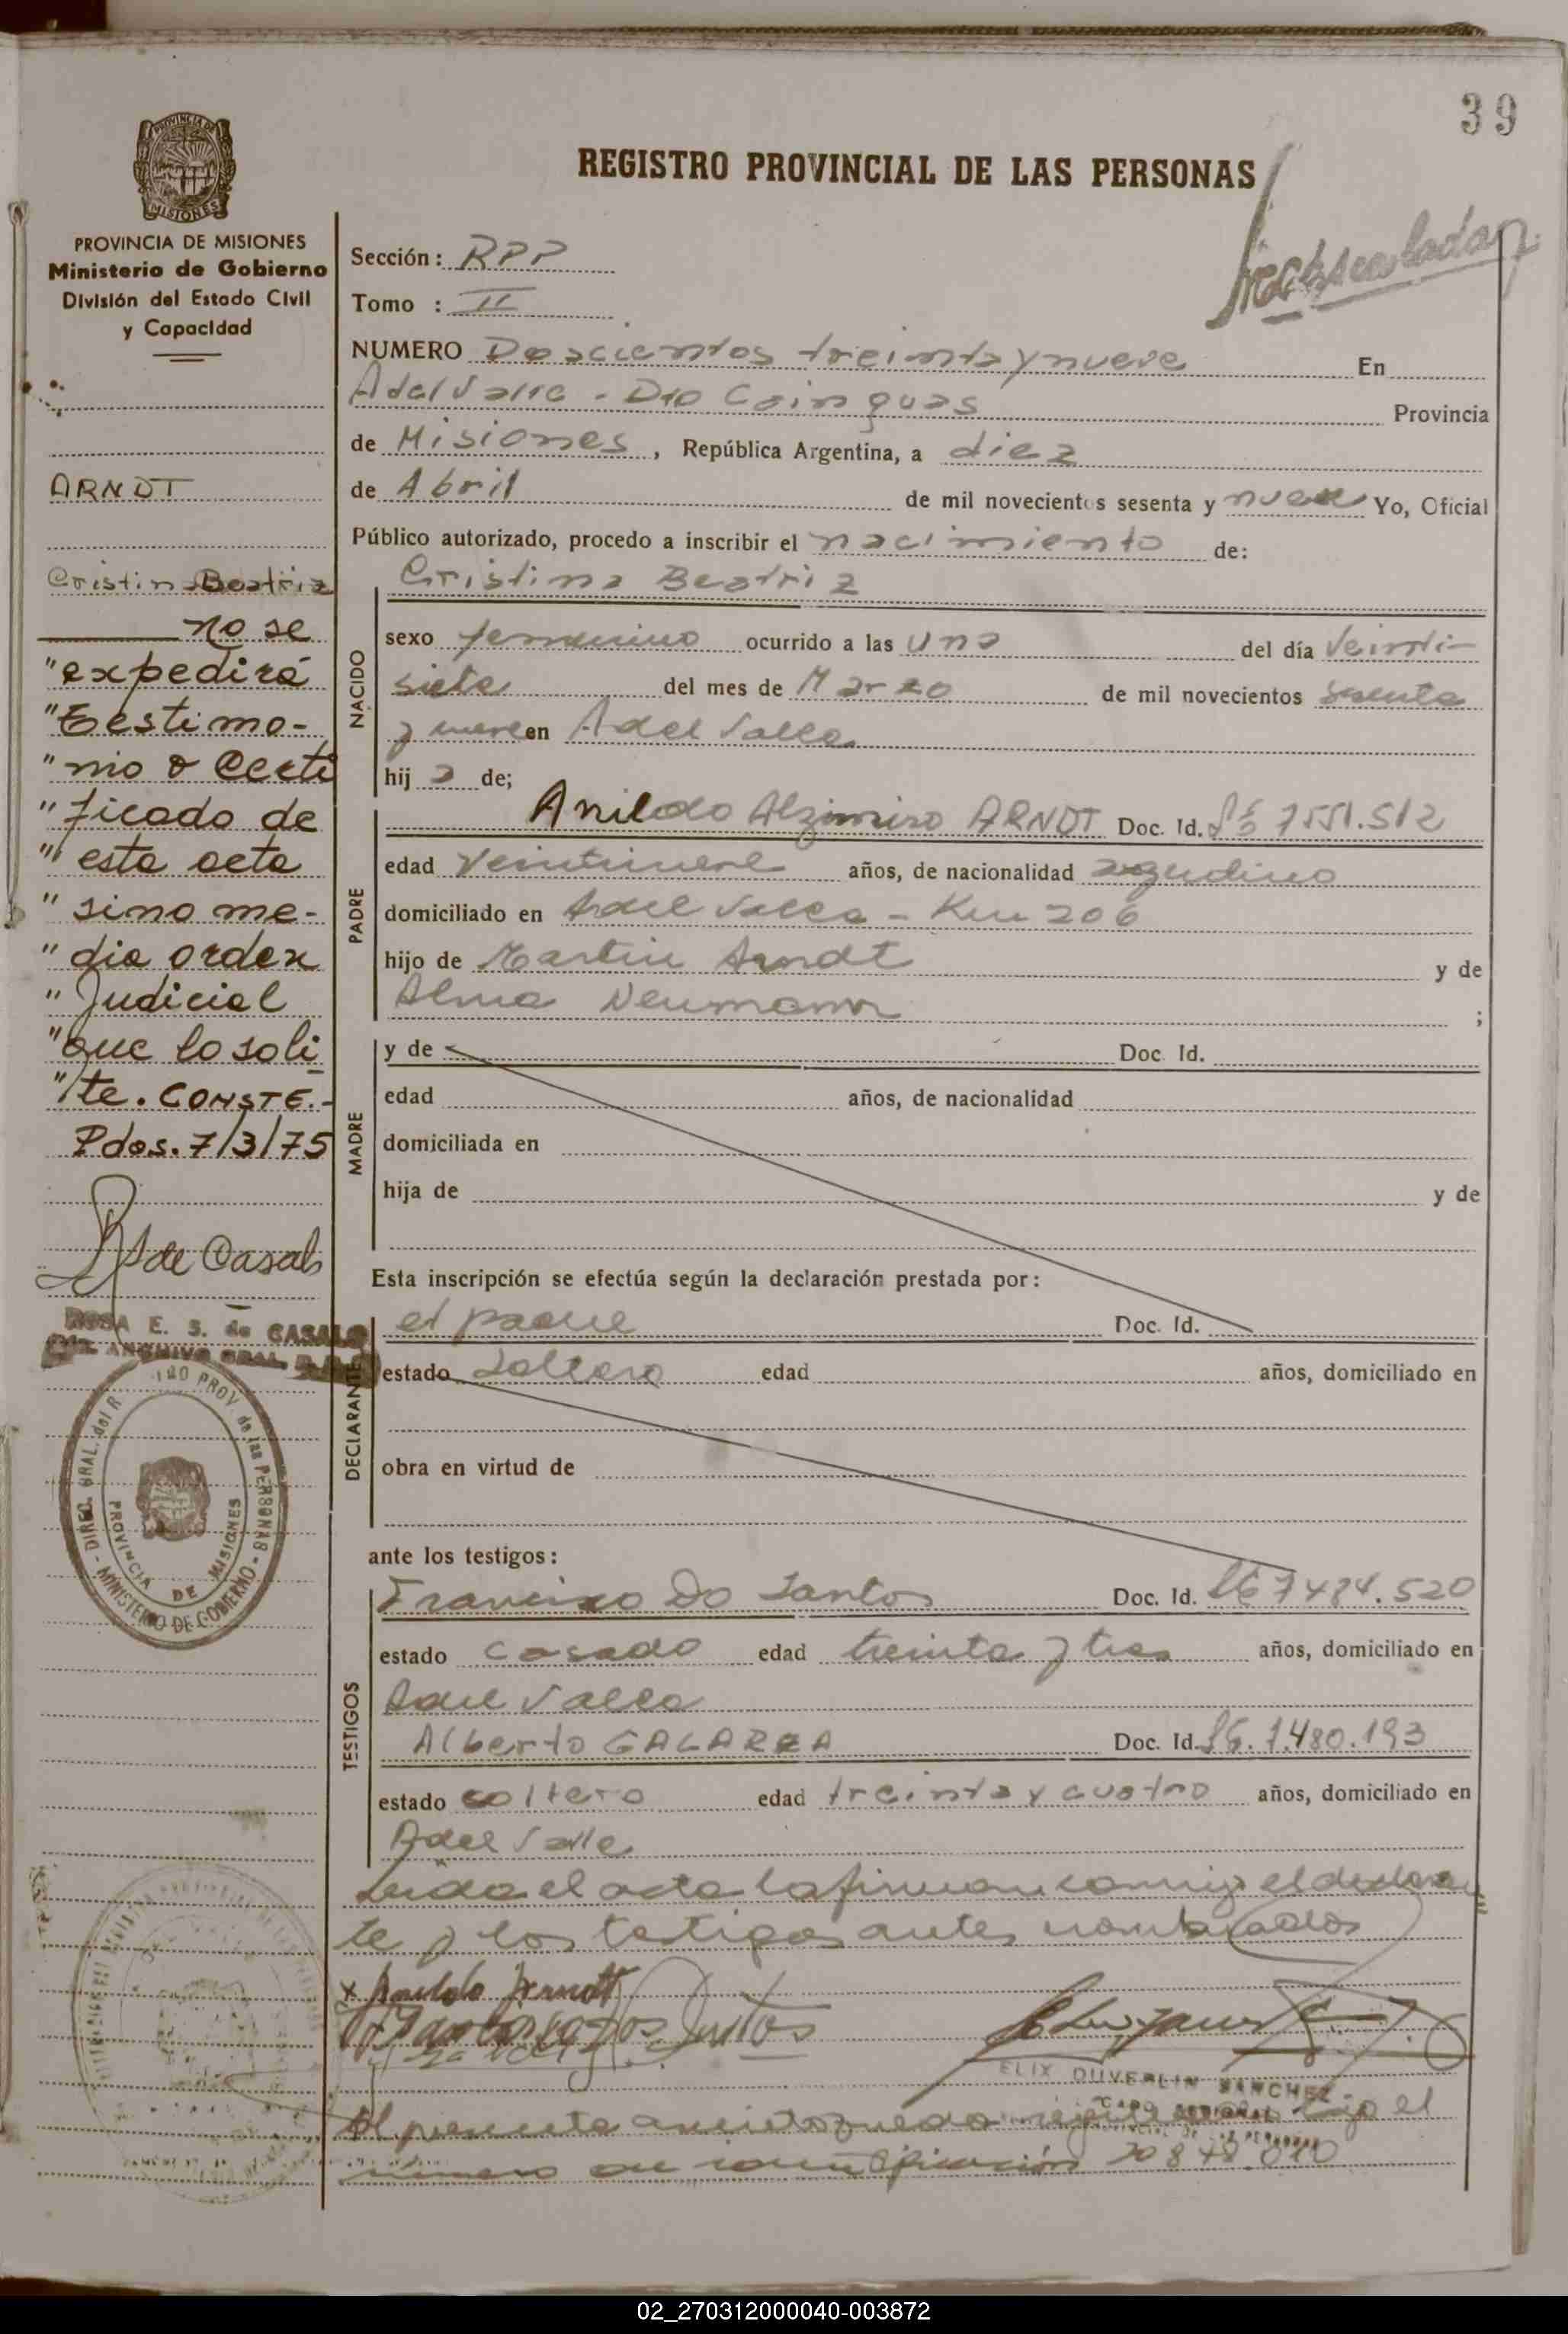 39
PROVINCIA DE MISIONES
REGISTRO PROVINCIAL DE LAS PERSONAS
PROVINCIA DE MISIONES
Ministerio de Gobierno
División del Estado Civil
y Capacidad
ARNDT
Cristina Beatriz
no se
"expedirá
"Testimo-
"nio o Certi
"ficado de
"esta acta
"sino me-
"dia orden
"Judicial
"que lo soli
"te. CONSTE.-
Pdas. 7/3/75
R S de Casals
ROSA E. S. de CASALS
ARCHIVO GRAL.
DIREC. GRAL. del R PROV. de las PERSONAS - MINISTERIO DE GOBIERNO -
PROVINCIA DE MISIONES
Sección: RPP
Tomo : II
NUMERO Doscientos treinta y nueve En
A del Valle - Dto Cainguas Provincia
de Misiones, República Argentina, a diez
de Abril de mil novecientos sesenta y nueve Yo, Oficial
Público autorizado, procedo a inscribir el nacimiento de:
Cristina Beatriz
NACIDO
sexo femenino ocurrido a las una del día Veinti-
siete del mes de Marzo de mil novecientos sesenta
y nueve en A del Valle
hij a de;
PADRE
Anildo Alzimiro ARNDT Doc. Id. 7551.512
edad Veintinueve años, de nacionalidad argentino
domiciliado en A del Valle - Km 206
hijo de Martin Arndt y de
Alma Neumann ;
MADRE
y de Doc. Id.
edad años, de nacionalidad
domiciliada en
hija de y de
Esta inscripción se efectúa según la declaración prestada por:
DECLARANTE
el padre Doc. Id.
estado soltero edad años, domiciliado en
obra en virtud de
ante los testigos:
TESTIGOS
Francisco Do Santos Doc. Id. 7484.520
estado casado edad treinta y tres años, domiciliado en
A del Valle
Alberto GALARZA Doc. Id. 7.480.193
estado soltero edad treinta y cuatro años, domiciliado en
A del Valle
Leida el acta la firman conmigo el declaran
te y los testigos antes nombrados
x Anildo Arndt
ELIX DUVERLIN SANCHEZ
El presente asiento queda bajo el
número de identificación 20 848.010
02_270312000040-003872